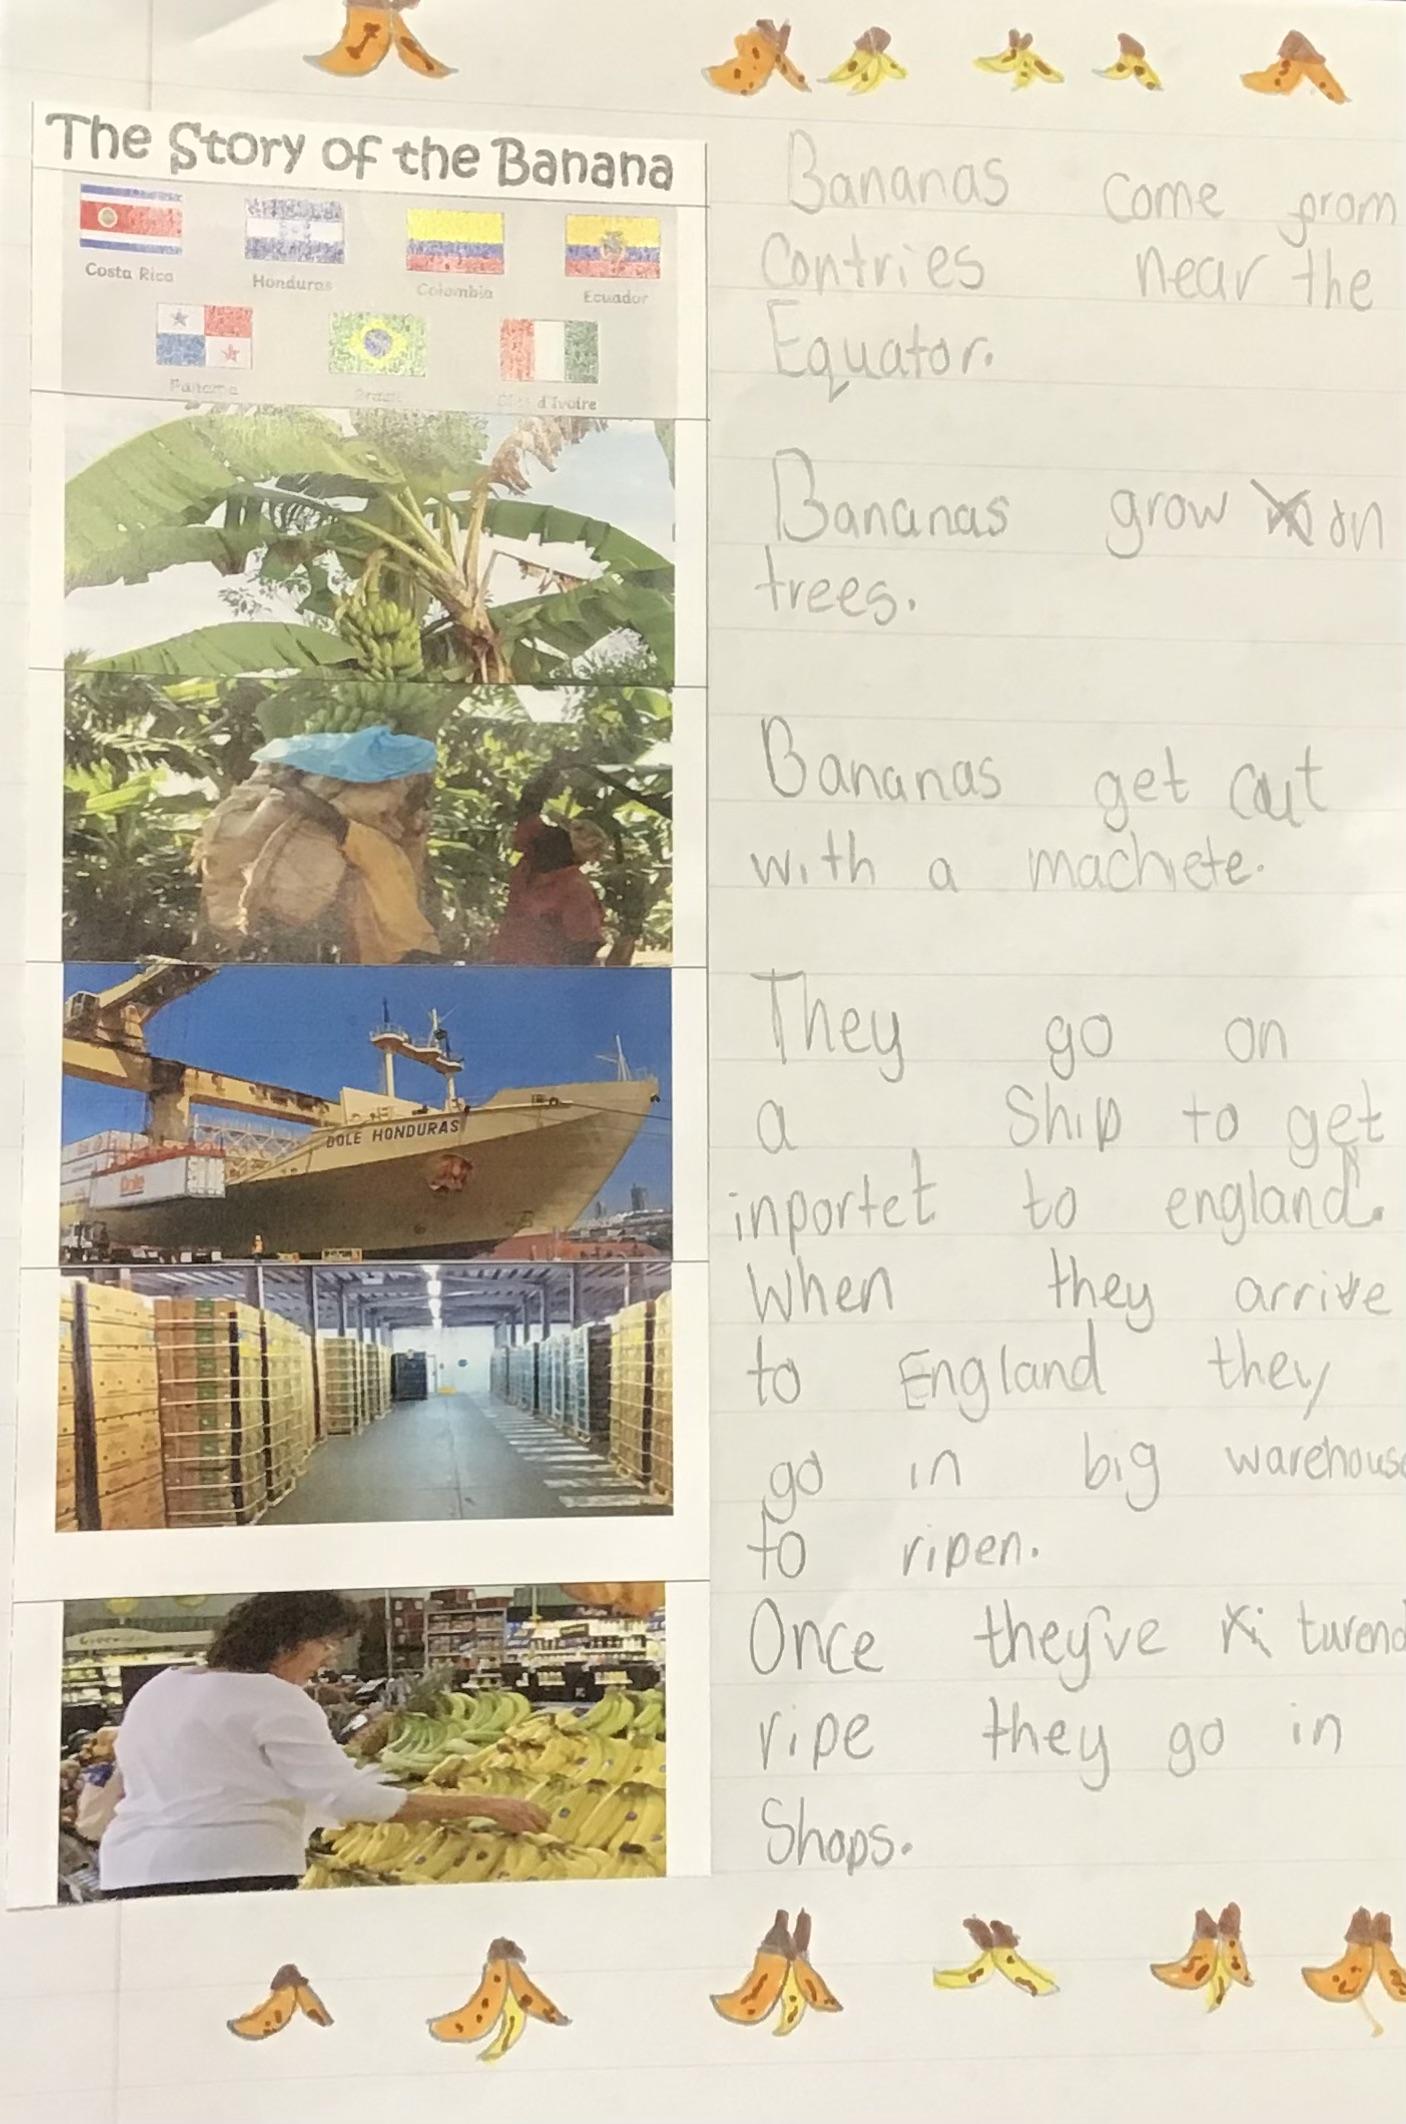 The Story of the Banana
Costa Rica
Honduras
Colombia
Ecuador
Panama
Brazil
Côte d'Ivoire
Bananas come from
contries near the
Equator.
Bananas grow on
trees.
DOLE HONDURAS
Dole
Bananas get cut
with a machete.
They go on
a Ship to get
inportet to england.
When they arrive
to England they
go in big warehouse
to ripen.
Once they've turend
ripe they go in
Shops.